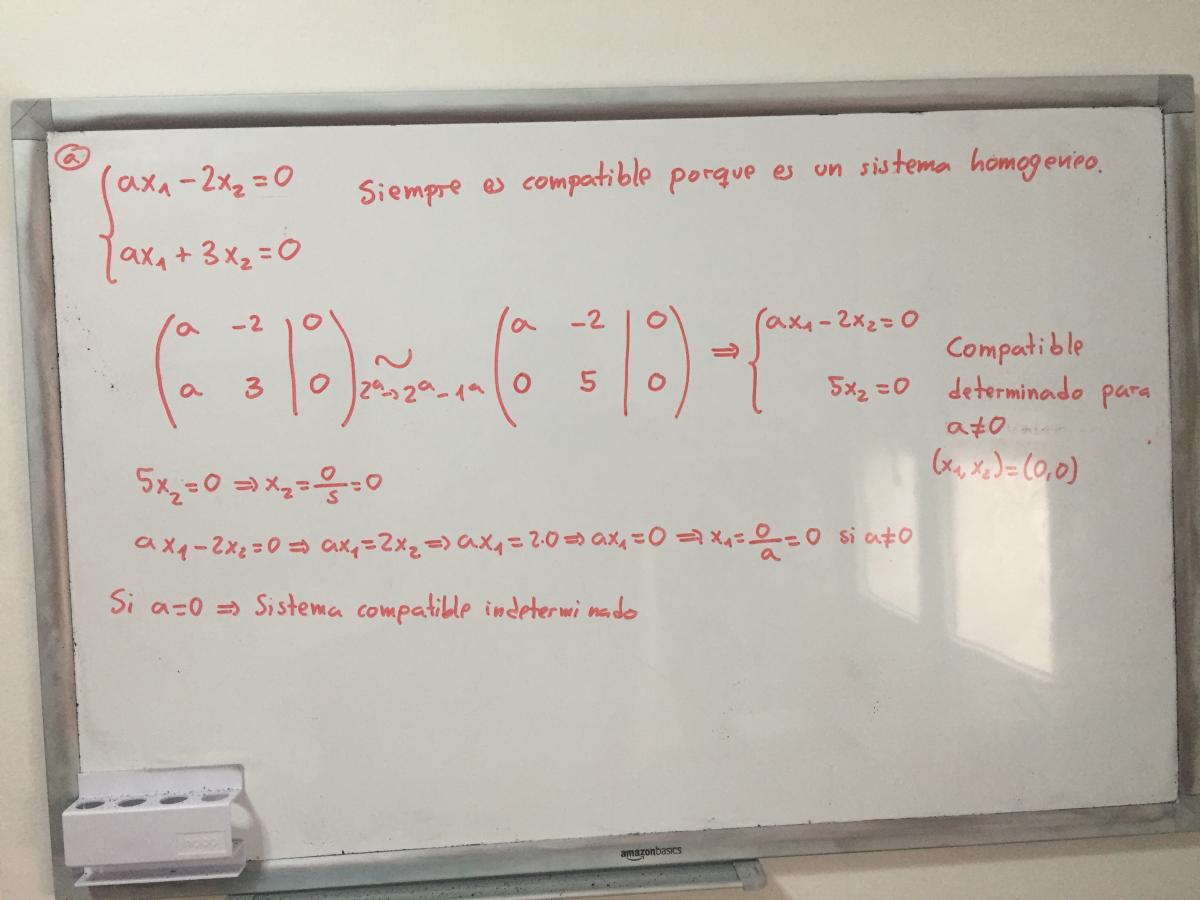 a
ax₁ - 2x₂ = 0 Siempre es compatible porque es un sistema homogeneo.
ax₁ + 3x₂ = 0
( a -2 | 0 ) ~ ( a -2 | 0 ) ⇒ { ax₁ - 2x₂ = 0
( a 3 | 0 ) 2ª→2ª-1ª ( 0 5 | 0 ) 5x₂ = 0
Compatible
determinado para
a≠0
(x₁, x₂) = (0,0)
5x₂ = 0 ⇒ x₂ = 0/5 = 0
ax₁ - 2x₂ = 0 ⇒ ax₁ = 2x₂ ⇒ ax₁ = 2·0 ⇒ ax₁ = 0 ⇒ x₁ = 0/a = 0 si a≠0
Si a=0 ⇒ Sistema compatible indeterminado
amazonbasics